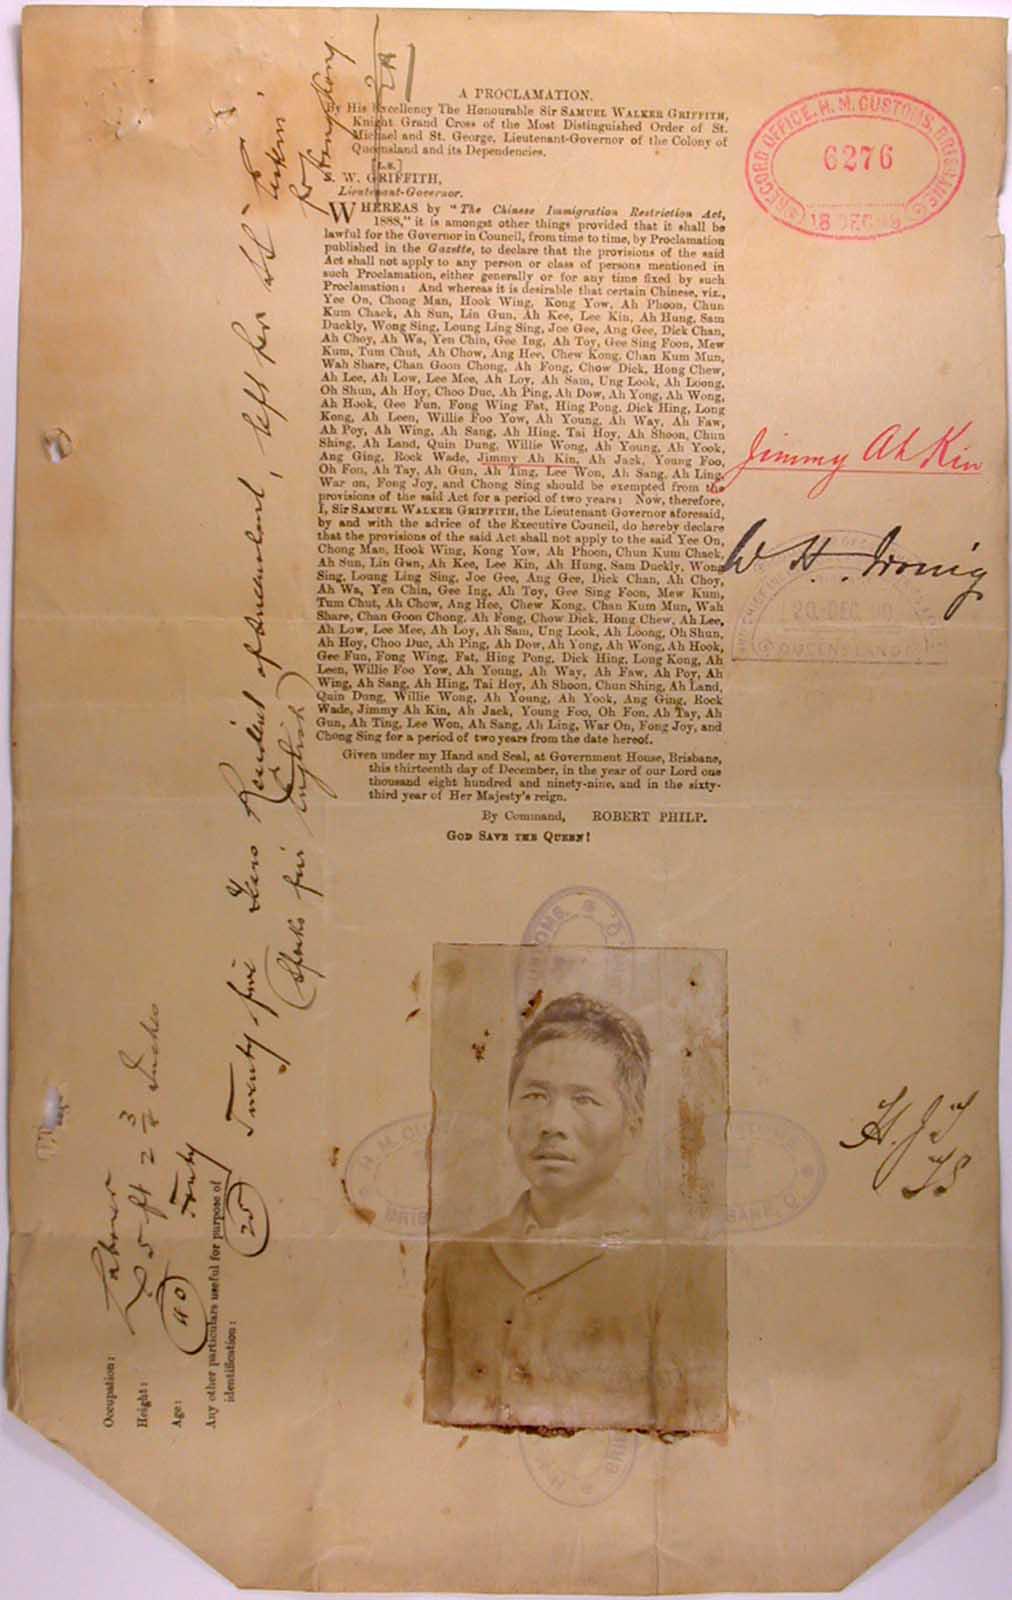 A PROCLAMATION.
By His Excellency The Honourable Sir SAMUEL WALKER GRIFFITH,
Knight Grand Cross of the Most Distinguished Order of St.
Michael and St. George, Lieutenant-Governor of the Colony of
Queensland and its Dependencies.
[L.S.]
S. W. GRIFFITH,
Lieutenant-Governor.
WHEREAS by "The Chinese Immigration Restriction Act,
1888," it is amongst other things provided that it shall be
lawful for the Governor in Council, from time to time, by Proclamation
published in the Gazette, to declare that the provisions of the said
Act shall not apply to any person or class of persons mentioned in
such Proclamation, either generally or for any time fixed by such
Proclamation: And whereas it is desirable that certain Chinese, viz.,
Yee On, Chong Man, Hook Wing, Kong Yow, Ah Phoon, Chun
Kum Chack, Ah Sun, Lin Gun, Ah Kee, Lee Kin, Ah Hung, Sam
Duckly, Wong Sing, Loung Ling Sing, Joe Gee, Ang Gee, Dick Chan,
Ah Choy, Ah Wa, Yen Chin, Gee Ing, Ah Toy, Gee Sing Foon, Mew
Kum, Tum Chut, Ah Chow, Ang Hee, Chew Kong, Chan Kum Mun,
Wah Share, Chan Goon Chong, Ah Fong, Chow Dick, Hong Chew,
Ah Lee, Ah Low, Lee Mee, Ah Loy, Ah Sam, Ung Look, Ah Loong,
Oh Shun, Ah Hoy, Choo Duc, Ah Ping, Ah Dow, Ah Yong, Ah Wong,
Ah Hook, Gee Fun, Fong Wing Fat, Hing Pong, Dick Hing, Long
Kong, Ah Leen, Willie Foo Yow, Ah Young, Ah Way, Ah Faw,
Ah Poy, Ah Wing, Ah Sang, Ah Hing, Tai Hoy, Ah Shoon, Chun
Shing, Ah Land, Quin Dung, Willie Wong, Ah Young, Ah Yook,
Ang Ging, Rock Wade, Jimmy Ah Kin, Ah Jack, Young Foo,
Oh Fon, Ah Tay, Ah Gun, Ah Ting, Lee Won, Ah Sang, Ah Ling,
War on, Fong Joy, and Chong Sing should be exempted from the
provisions of the said Act for a period of two years: Now, therefore,
I, Sir SAMUEL WALKER GRIFFITH, the Lieutenant Governor aforesaid,
by and with the advice of the Executive Council, do hereby declare
that the provisions of the said Act shall not apply to the said Yee On,
Chong Man, Hook Wing, Kong Yow, Ah Phoon, Chun Kum Chack,
Ah Sun, Lin Gun, Ah Kee, Lee Kin, Ah Hung, Sam Duckly, Wong
Sing, Loung Ling Sing, Joe Gee, Ang Gee, Dick Chan, Ah Choy,
Ah Wa, Yen Chin, Gee Ing, Ah Toy, Gee Sing Foon, Mew Kum,
Tum Chut, Ah Chow, Ang Hee, Chew Kong, Chan Kum Mun, Wah
Share, Chan Goon Chong, Ah Fong, Chow Dick, Hong Chew, Ah Lee,
Ah Low, Lee Mee, Ah Loy, Ah Sam, Ung Look, Ah Loong, Oh Shun,
Ah Hoy, Choo Duc, Ah Ping, Ah Dow, Ah Yong, Ah Wong, Ah Hook,
Gee Fun, Fong Wing, Fat, Hing Pong, Dick Hing, Long Kong, Ah
Leen, Willie Foo Yow, Ah Young, Ah Way, Ah Faw, Ah Poy, Ah
Wing, Ah Sang, Ah Hing, Tai Hoy, Ah Shoon, Chun Shing, Ah Land,
Quin Dung, Willie Wong, Ah Young, Ah Yook, Ang Ging, Rock
Wade, Jimmy Ah Kin, Ah Jack, Young Foo, Oh Fon, Ah Tay, Ah
Gun, Ah Ting, Lee Won, Ah Sang, Ah Ling, War On, Fong Joy, and
Chong Sing for a period of two years from the date hereof.
Given under my Hand and Seal, at Government House, Brisbane,
this thirteenth day of December, in the year of our Lord one
thousand eight hundred and ninety-nine, and in the sixty-
third year of Her Majesty's reign.
By Command, ROBERT PHILP.
GOD SAVE THE QUEEN!
RECORD OFFICE, H. M. CUSTOMS, BRISBANE
6276
18 DEC 99
Jimmy Ah Kin
W. H. Irving
QUEENSLAND
Occupation: Labourer
Height: 5 ft 2 3/4 Inches
Age: (40) Forty
Any other particulars useful for purpose of
identification:
(25) Twenty-five Years Resident of Queensland, left per
for Hong Kong
(Speaks fair English)